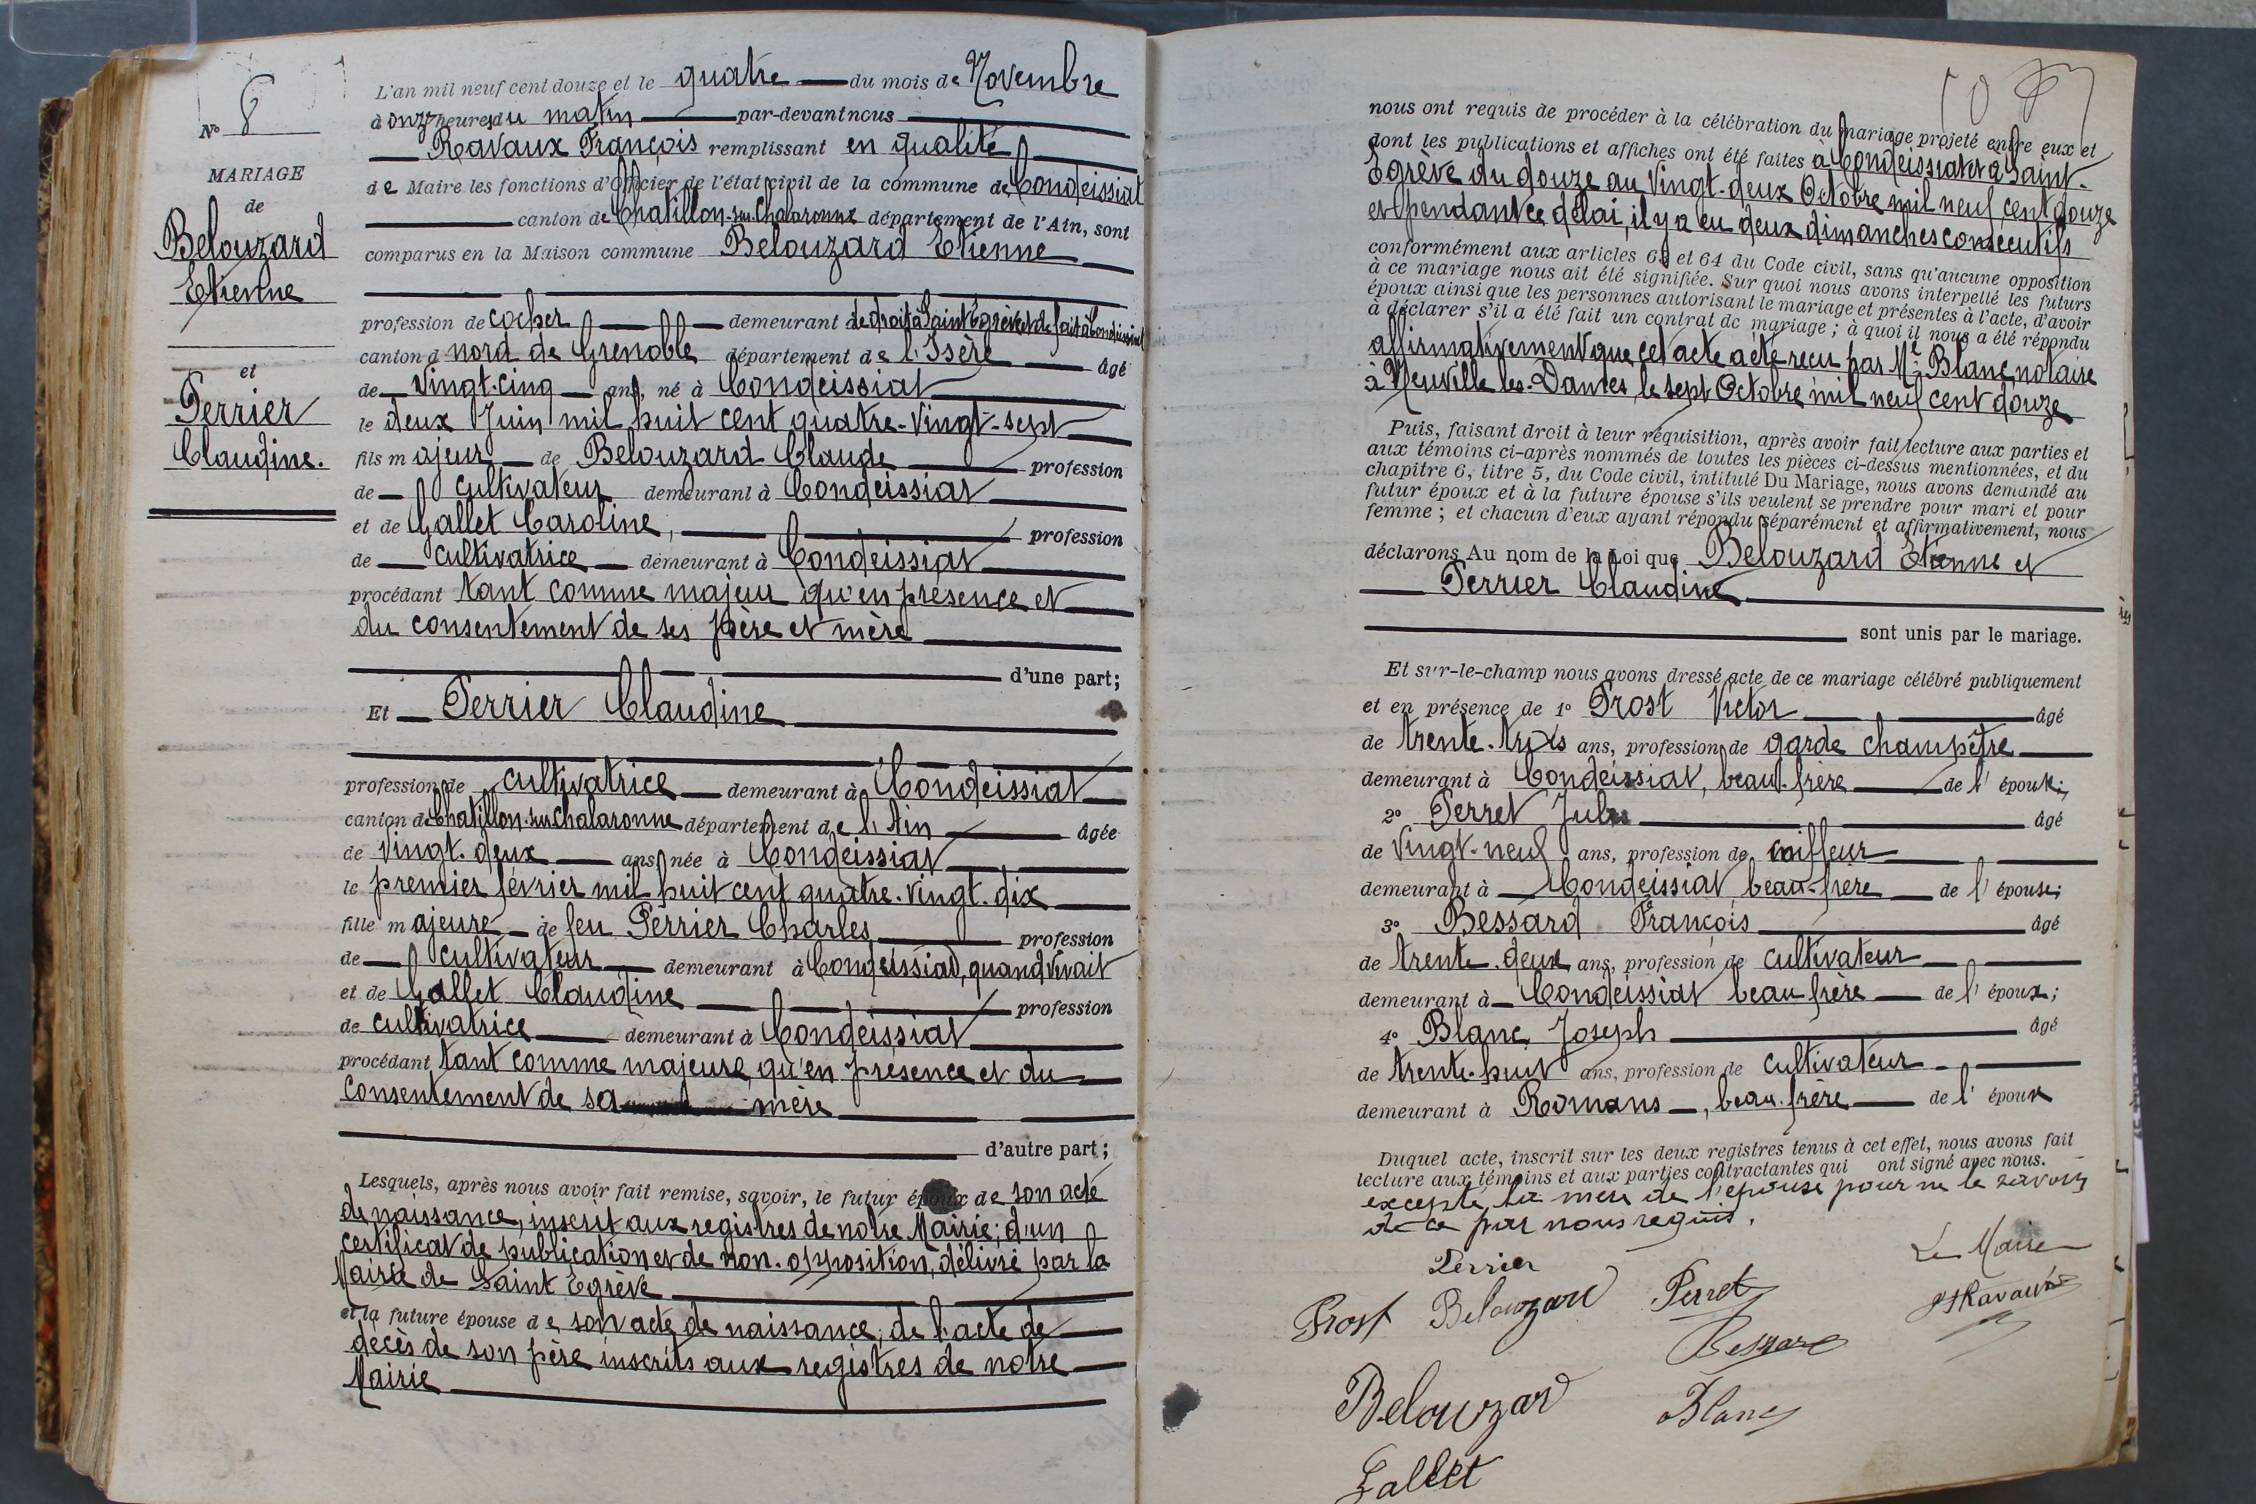 N° 8
MARIAGE
de
Belouzard
Etienne
et
Perrier
Claudine.
L'an mil neuf cent douze et le quatre du mois de Novembre
à onze heures du matin par-devant nous
Ravaux François remplissant en qualité
de Maire les fonctions d'Officier de l'état civil de la commune de Condeissiat
canton de Chatillon-sur-Chalaronne département de l'Ain, sont
comparus en la Maison commune Belouzard Etienne
profession de cocher demeurant à de droit à Saint Egrève et de fait à Condeissiat
canton d nord de Grenoble département de l'Isère âgé
de vingt-cinq ans, né à Condeissiat
le deux Juin mil huit cent quatre-vingt-sept
fils majeur de Belouzard Claude profession
de cultivateur demeurant à Condeissiat
et de Gallet Caroline, profession
de cultivatrice demeurant à Condeissiat
procédant tant comme majeur qu'en présence et
du consentement de ses père et mère
d'une part;
Et Perrier Claudine
profession de cultivatrice demeurant à Condeissiat
canton de Chatillon-sur-Chalaronne département de l'Ain âgée
de vingt-deux ans née à Condeissiat
le premier février mil huit cent quatre-vingt-dix
fille majeure de feu Perrier Charles profession
de cultivateur demeurant à Condeissiat, quand vivait
et de Gallet Claudine profession
de cultivatrice demeurant à Condeissiat
procédant tant comme majeure, qu'en présence et du
consentement de sa mère
d'autre part;
Lesquels, après nous avoir fait remise, savoir, le futur époux de son acte
de naissance, inscrit aux registres de notre Mairie; d'un
certificat de publication et de non-opposition, délivré par la
Mairie de Saint Egrève
et la future épouse de son acte de naissance, de l'acte de
décès de son père inscrits aux registres de notre
Mairie
nous ont requis de procéder à la célébration du mariage projeté entre eux et
dont les publications et affiches ont été faites à Condeissiat et à Saint-
Egrève du douze au vingt-deux Octobre mil neuf cent douze
et pendant ce délai, il y a eu deux dimanches consécutifs
conformément aux articles 63 et 64 du Code civil, sans qu'aucune opposition
à ce mariage nous ait été signifiée. Sur quoi nous avons interpellé les futurs
époux ainsi que les personnes autorisant le mariage et présentes à l'acte, d'avoir
à déclarer s'il a été fait un contrat de mariage; à quoi il nous a été répondu
affirmativement que cet acte a été reçu par Me Blanc notaire
à Neuville-les-Dames, le sept Octobre mil neuf cent douze
Puis, faisant droit à leur réquisition, après avoir fait lecture aux parties et
aux témoins ci-après nommés de toutes les pièces ci-dessus mentionnées, et du
chapitre 6, titre 5, du Code civil, intitulé Du Mariage, nous avons demandé au
futur époux et à la future épouse s'ils veulent se prendre pour mari et pour
femme; et chacun d'eux ayant répondu séparément et affirmativement, nous
déclarons Au nom de la Loi que Belouzard Etienne et
Perrier Claudine
sont unis par le mariage.
Et sur-le-champ nous avons dressé acte de ce mariage célébré publiquement
et en présence de 1° Prost Victor âgé
de trente-trois ans, profession de garde champêtre
demeurant à Condeissiat, beau-frère de l'époux;
2° Perret Jules âgé
de vingt-neuf ans, profession de coiffeur
demeurant à Condeissiat beau-frère de l'épouse;
3° Bessard François âgé
de trente-deux ans, profession de cultivateur
demeurant à Condeissiat beau frère de l'époux;
4° Blanc Joseph âgé
de trente-huit ans, profession de cultivateur
demeurant à Romans, beau-frère de l'époux
Duquel acte, inscrit sur les deux registres tenus à cet effet, nous avons fait
lecture aux témoins et aux parties contractantes qui ont signé avec nous.
excepté la mère de l'épouse pour ne le savoir
de ce par nous requis.
Perrier
Le Maire
Prost Belouzard Perret
Ravaux
Bessard
Belouzard
Blanc
Gallet